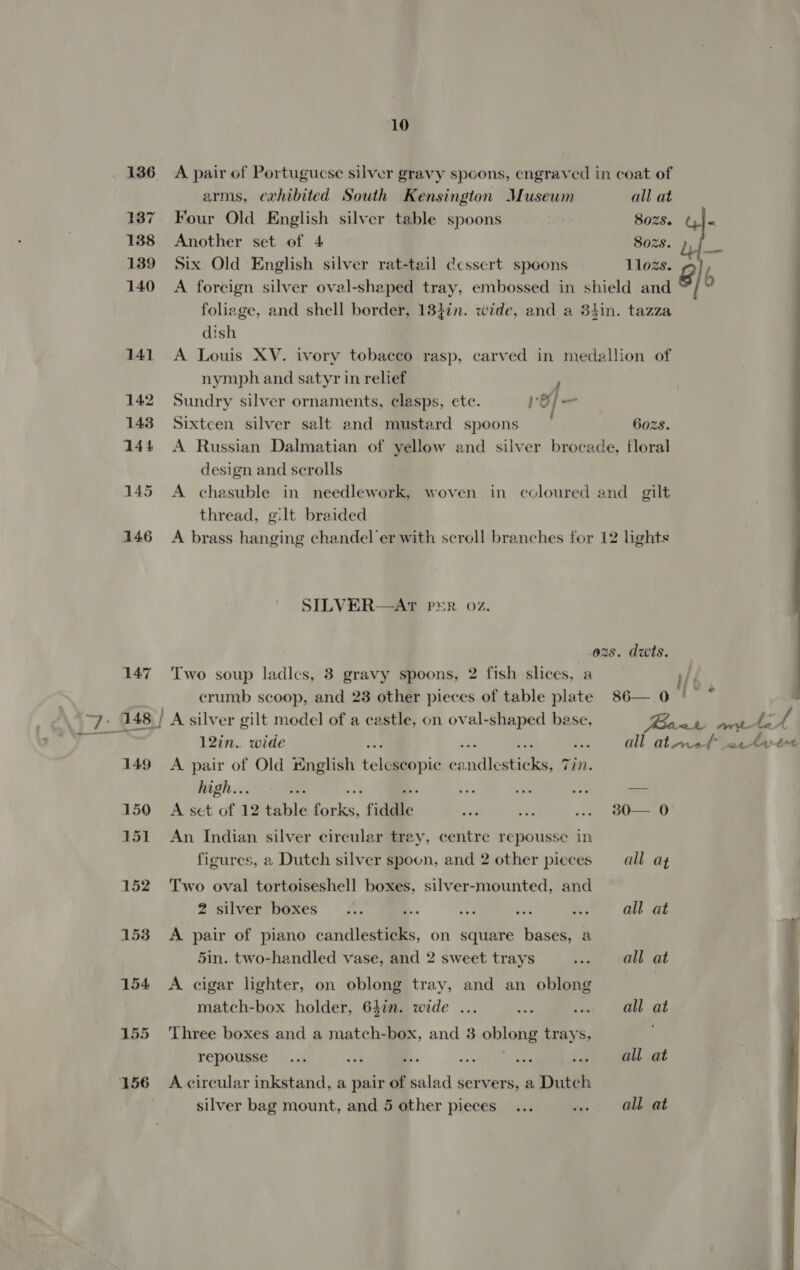 10
136 A pair of Portuguese silver gravy spoons, engraved in coat of
arms, exhibited South Kensington Museum all at
137 Four Old English silver table spoons 8ozs. 4/-
138 Another set of 4 8ozs. 4/-
139 Six Old English silver rat-tail dessert spoons 11ozs. 8/6
140 A foreign silver oval-shaped tray, embossed in shield and
foliage, and shell border, 13½in. wide, and a 3½in. tazza
dish
141 A Louis XV. ivory tobacco rasp, carved in medallion of
nymph and satyr in relief
142 Sundry silver ornaments, clasps, etc. 18/-
143 Sixteen silver salt and mustard spoons 6ozs.
144 A Russian Dalmatian of yellow and silver brocade, floral
design and scrolls
145 A chasuble in needlework, woven in coloured and gilt
thread, gilt braided
146 A brass hanging chandel er with scroll branches for 12 lights
SILVER—AT PER OZ.
ozs. dwts.
147 Two soup ladles, 3 gravy spoons, 2 fish slices, a
crumb scoop, and 23 other pieces of table plate 86— 0
7. 148 / A silver gilt model of a castle, on oval-shaped base, Base metal
12in. wide ... ... ... ... all at not silver
149 A pair of Old English telescopic candlesticks, 7in.
high... ... ... ... ... ... ... —
150 A set of 12 table forks, fiddle ... ... ... 30— 0
151 An Indian silver circular tray, centre repousse in
figures, a Dutch silver spoon, and 2 other pieces all at
152 Two oval tortoiseshell boxes, silver-mounted, and
2 silver boxes ... ... ... ... ... all at
153 A pair of piano candlesticks, on square bases, a
5in. two-handled vase, and 2 sweet trays ... all at
154 A cigar lighter, on oblong tray, and an oblong
match-box holder, 6½in. wide ... ... ... all at
155 Three boxes and a match-box, and 3 oblong trays,
repousse ... ... ... ... ... ... all at
156 A circular inkstand, a pair of salad servers, a Dutch
silver bag mount, and 5 other pieces ... ... all at